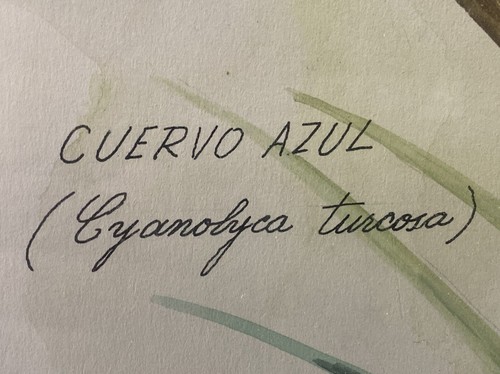 CUERVO AZUL
(Cyanolyca turcosa)